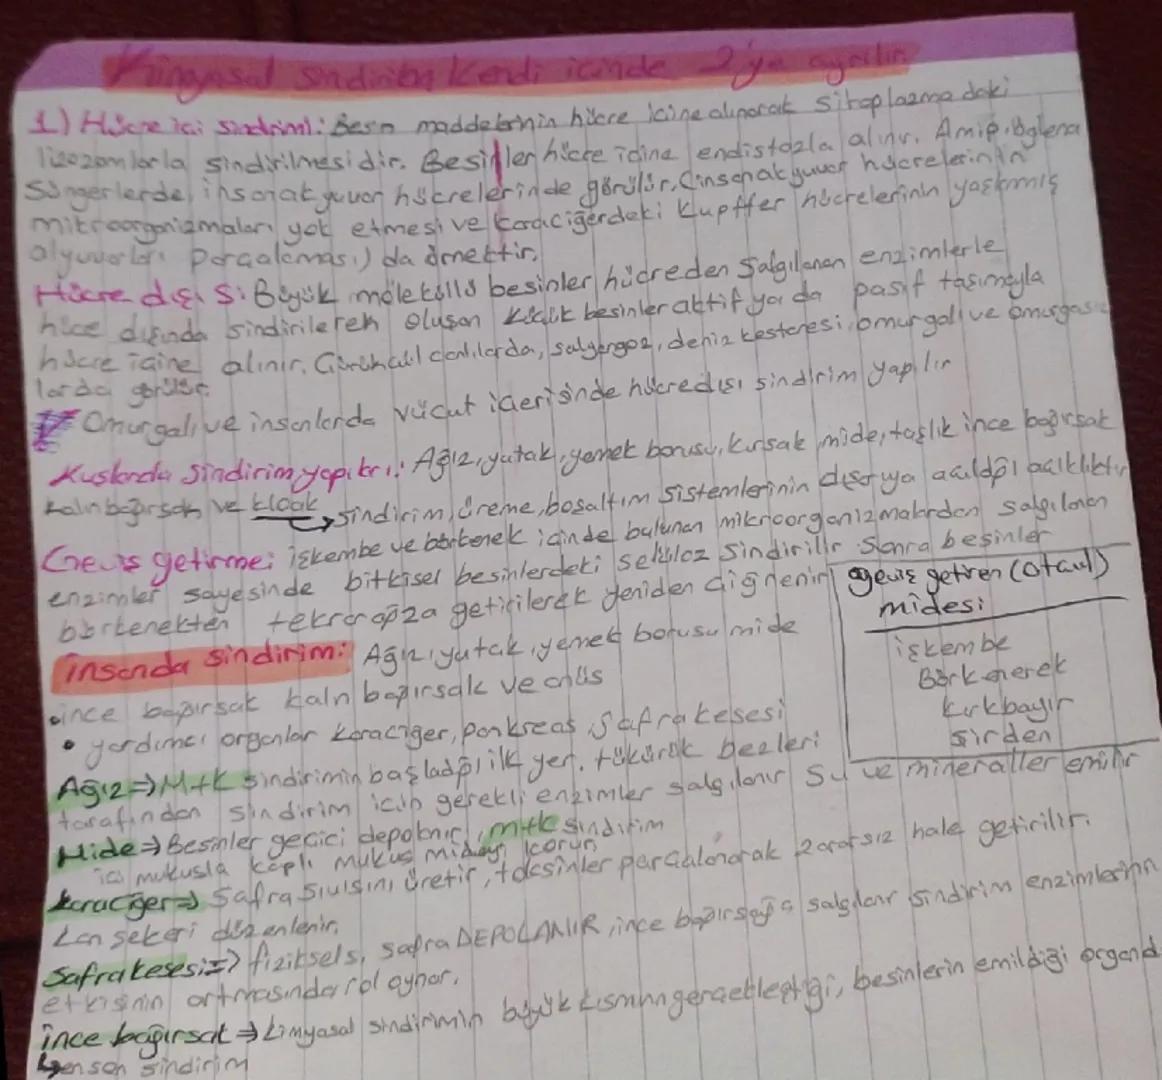 Kimyasal sindirim kendi içinde 2'ye ayrılır
1) Hücre içi sindirim: Besin maddelerinin hücre içine alınarak sitoplazmadaki
lizozomlarla sindirilmesidir. Besinler hücre içine endositozla alınır. Amip, öglena
Süngerlerde, insanakyuvar hücrelerinde görülür. (insanakyuvar hücrelerinin
mikroorganizmaları yok etmesi ve karaciğerdeki Kupffer hücrelerinin yaşlanmış
alyuvarları parçalaması) da örnektir.
Hücre dışı S: Büyük moleküllü besinler hücreden salgılanan enzimlerle
hüce dışında sindirilerek oluşan küçük besinler aktif ya da pasif taşımayla
hücre içine alınır. Çürükçül canlılarda, salyangoz, deniz kestanesi, omurgalı ve omurgasız
larda görülür.
Omurgalı ve insanlarda vücut içerisinde hücre dışı sindirim yapılır
Kuşlarda Sindirim yapıları: Ağız, yutak, yemek borusu, kursak, mide, taşlık ince bağırsak
kalın bağırsak ve kloak
sindirim, üreme, boşaltım sistemlerinin dışarıya açıldığı açıklıktır
Geviş getirme: işkembe ve börkenek içinde bulunan mikroorganizmalardan salgılanan
enzimler sayesinde bitkisel besinlerdeki selüloz sindirilir. Sonra besinler
börkenekten tekrar ağza getirilerek yeniden çiğnenir
geviş getiren (otçul)
midesi
işkembe
Börkenerek
kırkbayır
şirden
insanda sindirim: Ağız, yutak, yemek borusu mide
ince bağırsak kalın bağırsak ve anüs
• yardımcı organlar karaciğer, pankreas, safra kesesi
Ağız => M+K sindirimin başladığı ilk yer. tükürük bezleri
tarafından sindirim için gerekli enzimler salgılanır
Mide => Besinler geçici depolanır, m+k sindirim su ve mineraller emilir
içi mukusla kaplı mukus mideyi korur
karaciğer => Safra sıvısını üretir, toksinler parçalanarak zararsız hale getirilir.
Kan şekeri düzenlenir.
Safra kesesi => fiziksels, safra DEPOLANIR, ince bağırsağa salgılanır sindirim enzimlerinin
etkisinin artmasında rol oynar.
ince bağırsak => kimyasal sindirimin büyük kısmının gerçekleştiği, besinlerin emildiği organdı
en son sindirim